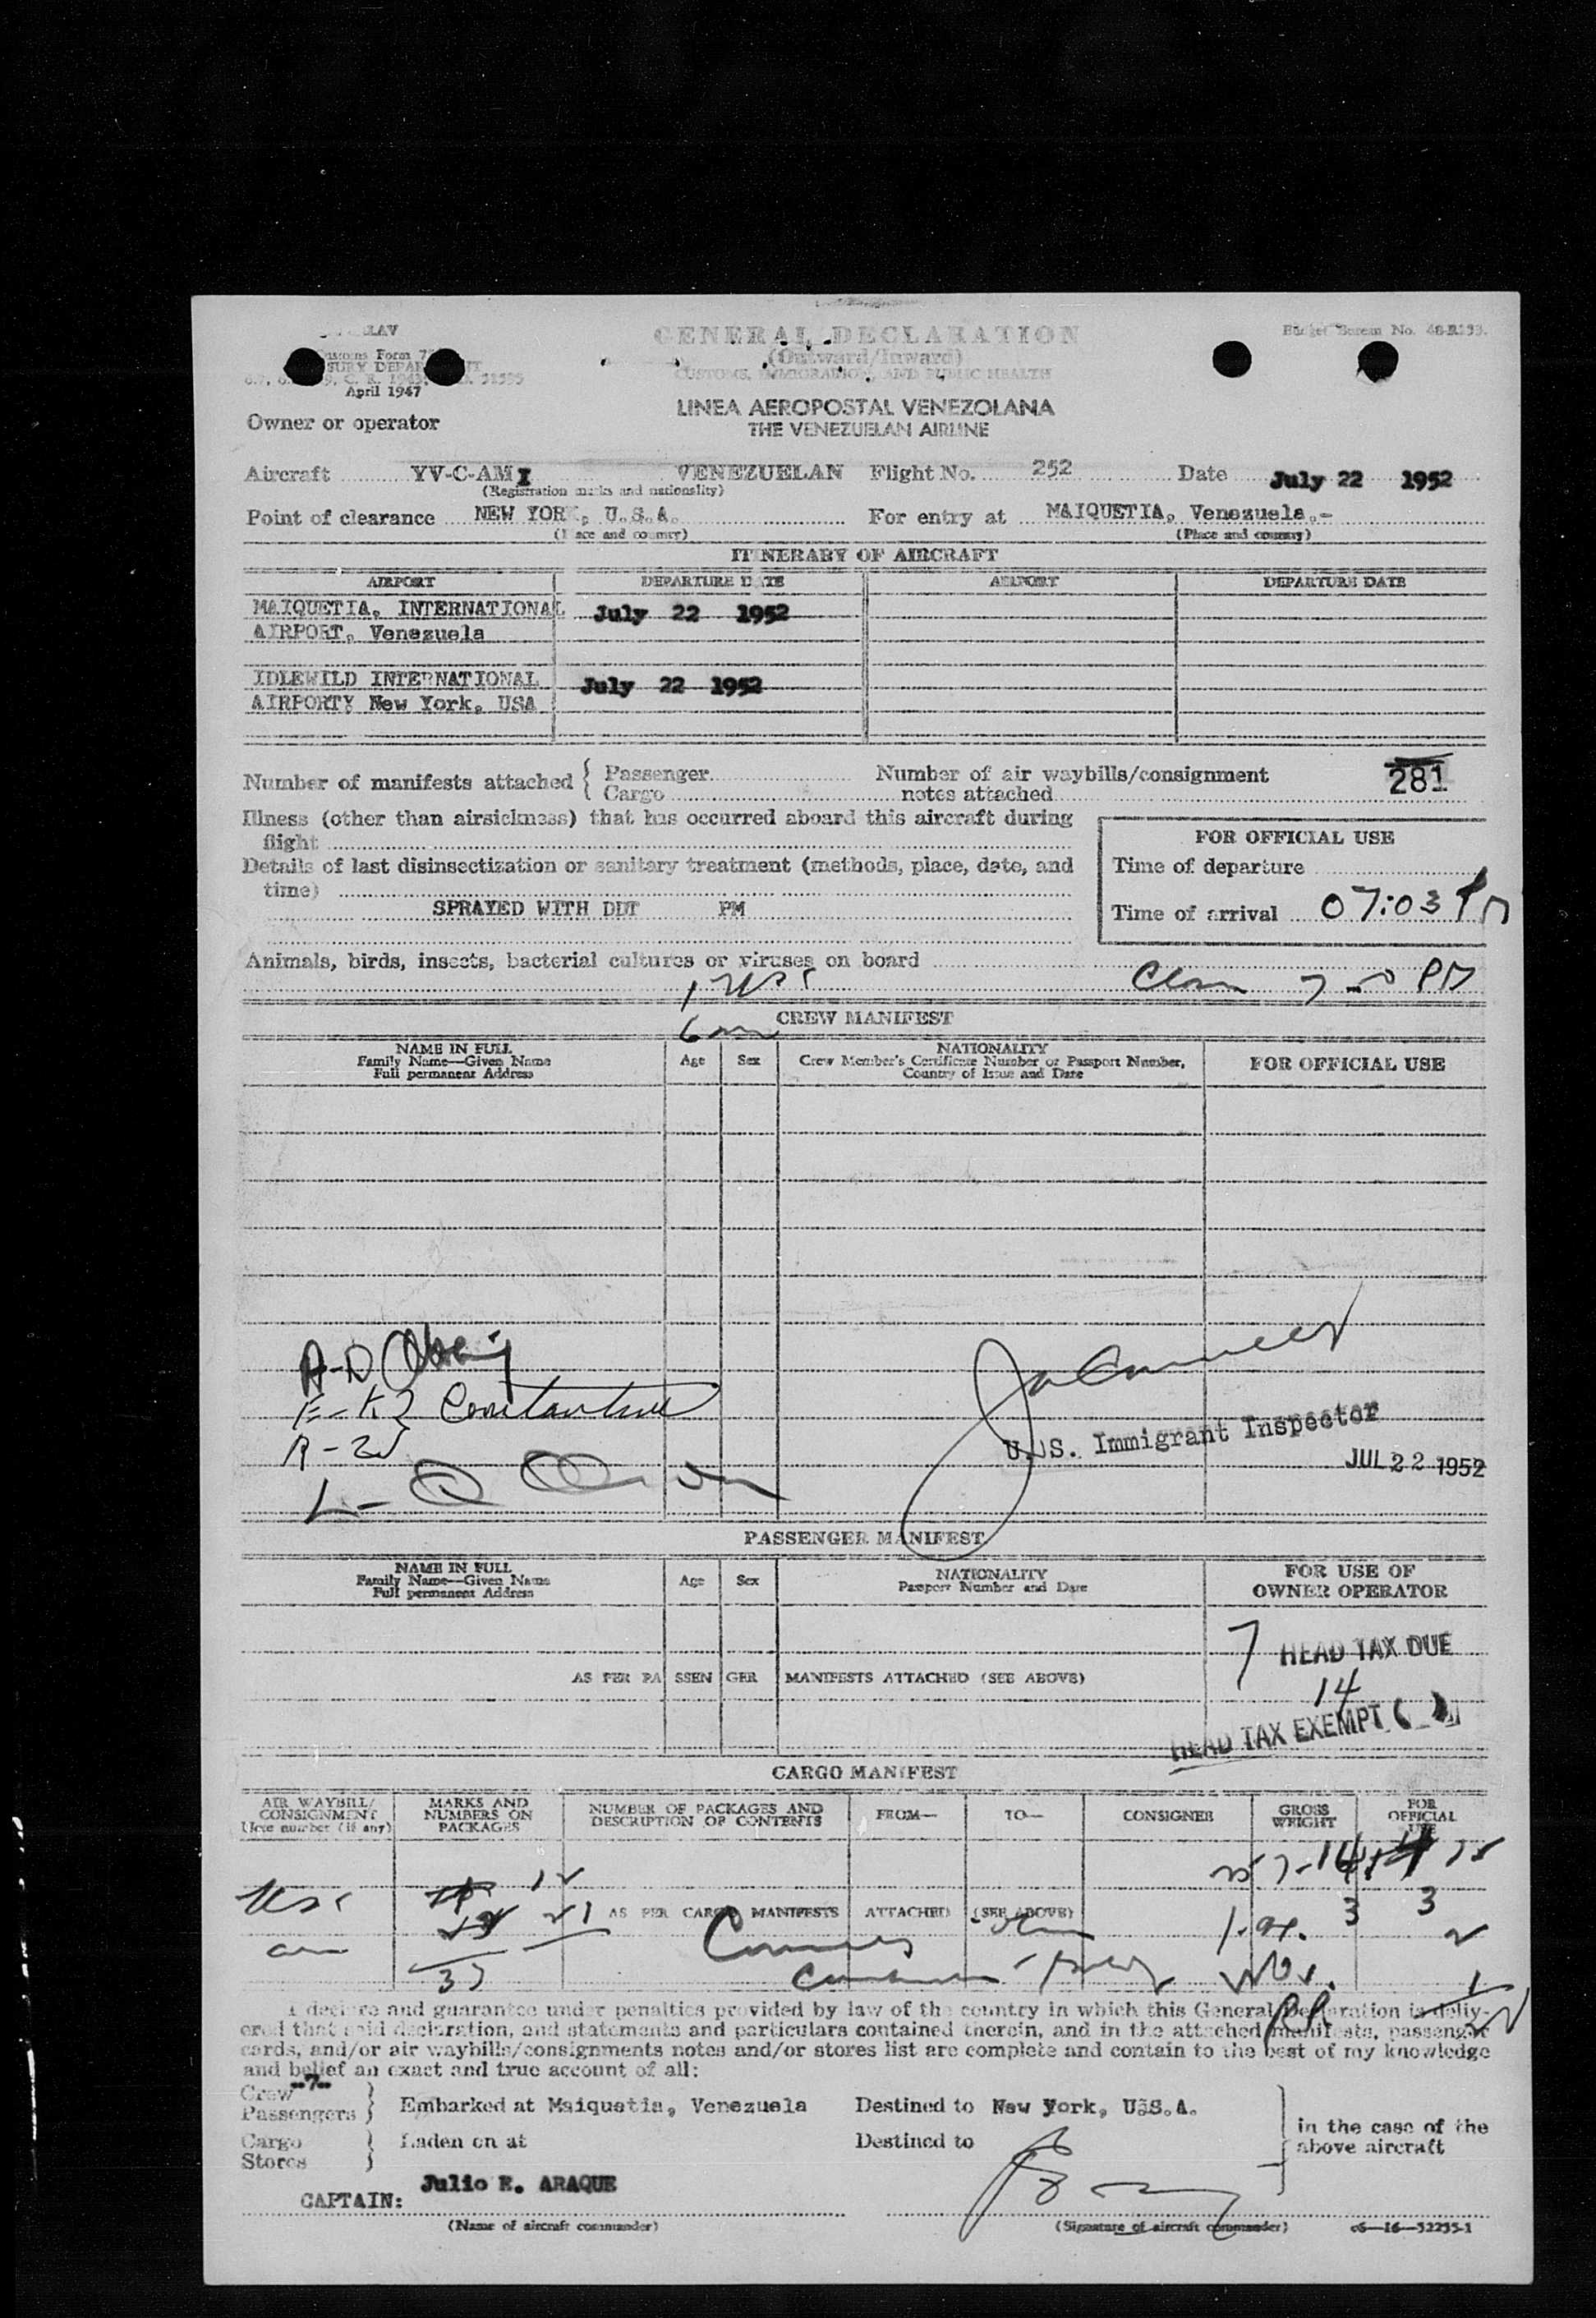 LAV
GENERAL DECLARATION
Budget Bureau No. 48-R193.
(Outward/Inward)
Customs Form
CUSTOMS, IMMIGRATION, AND PUBLIC HEALTH
April 1947
LINEA AEROPOSTAL VENEZOLANA
Owner or operator
THE VENEZUELAN AIRLINE
Aircraft YV-C-AMI VENEZUELAN Flight No. 252 Date July 22 1952
(Registration marks and nationality)
Point of clearance NEW YORK, U.S.A. For entry at MAIQUETIA, Venezuela.-
(Place and country) (Place and country)
ITINERARY OF AIRCRAFT
AIRPORT DEPARTURE DATE AIRPORT DEPARTURE DATE
MAIQUETIA, INTERNATIONAL July 22 1952
AIRPORT, Venezuela
IDLEWILD INTERNATIONAL July 22 1952
AIRPORTY New York, USA
Number of manifests attached { Passenger Number of air waybills/consignment 281
Cargo notes attached
Illness (other than airsickness) that has occurred aboard this aircraft during
flight
FOR OFFICIAL USE
Details of last disinsectization or sanitary treatment (methods, place, date, and
time)
Time of departure
SPRAYED WITH DDT PM
Time of arrival 07:03 PM
Animals, birds, insects, bacterial cultures or viruses on board
CREW MANIFEST
NAME IN FULL
Family Name—Given Name
Full permanent Address
Age Sex
NATIONALITY
Crew Member's Certificate Number or Passport Number,
Country of Issue and Date
FOR OFFICIAL USE
U.S. Immigrant Inspector
JUL 22 1952
PASSENGER MANIFEST
NAME IN FULL
Family Name—Given Name
Full permanent Address
Age Sex
NATIONALITY
Passport Number and Date
FOR USE OF
OWNER OPERATOR
7 HEAD TAX DUE
AS PER PASSENGER MANIFESTS ATTACHED (SEE ABOVE)
14
HEAD TAX EXEMPT
CARGO MANIFEST
AIR WAYBILL/
CONSIGNMENT
Note number (if any)
MARKS AND
NUMBERS ON
PACKAGES
NUMBER OF PACKAGES AND
DESCRIPTION OF CONTENTS
FROM— TO— CONSIGNEE
GROSS
WEIGHT
FOR
OFFICIAL
USE
AS PER CARGO MANIFESTS ATTACHED (SEE ABOVE)
I declare and guarantee under penalties provided by law of the country in which this General Declaration is deliv-
ered that said declaration, and statements and particulars contained therein, and in the attached manifests, passenger
cards, and/or air waybills/consignments notes and/or stores list are complete and contain to the best of my knowledge
and belief an exact and true account of all:
Crew --7--
Passengers } Embarked at Maiquetia, Venezuela Destined to New York, U.S.A.
in the case of the
above aircraft
Cargo
Stores } Laden on at Destined to
CAPTAIN: Julio E. ARAQUE
(Name of aircraft commander) (Signature of aircraft commander) 06—16—52255-1